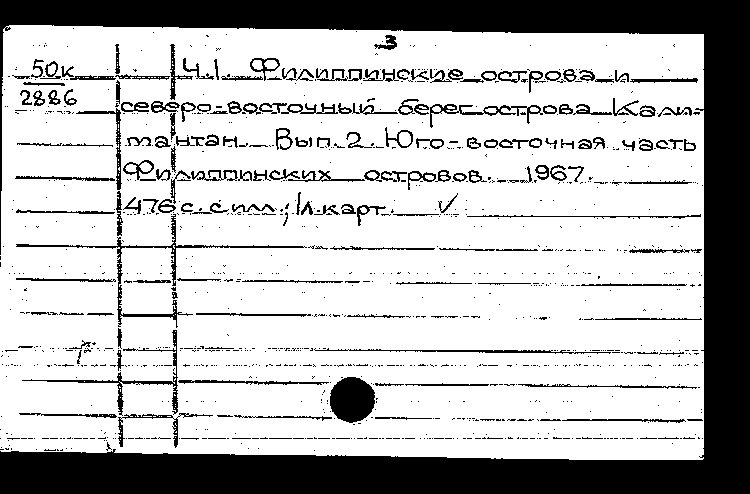 3
50к
2886
Ч.1. Филиппинские острова и
северо-восточный берег острова Кали-
мантан. Вып. 2. Юго-восточная часть
Филиппинских островов. 1967.
476 с. с илл.; 1л. карт. ✓